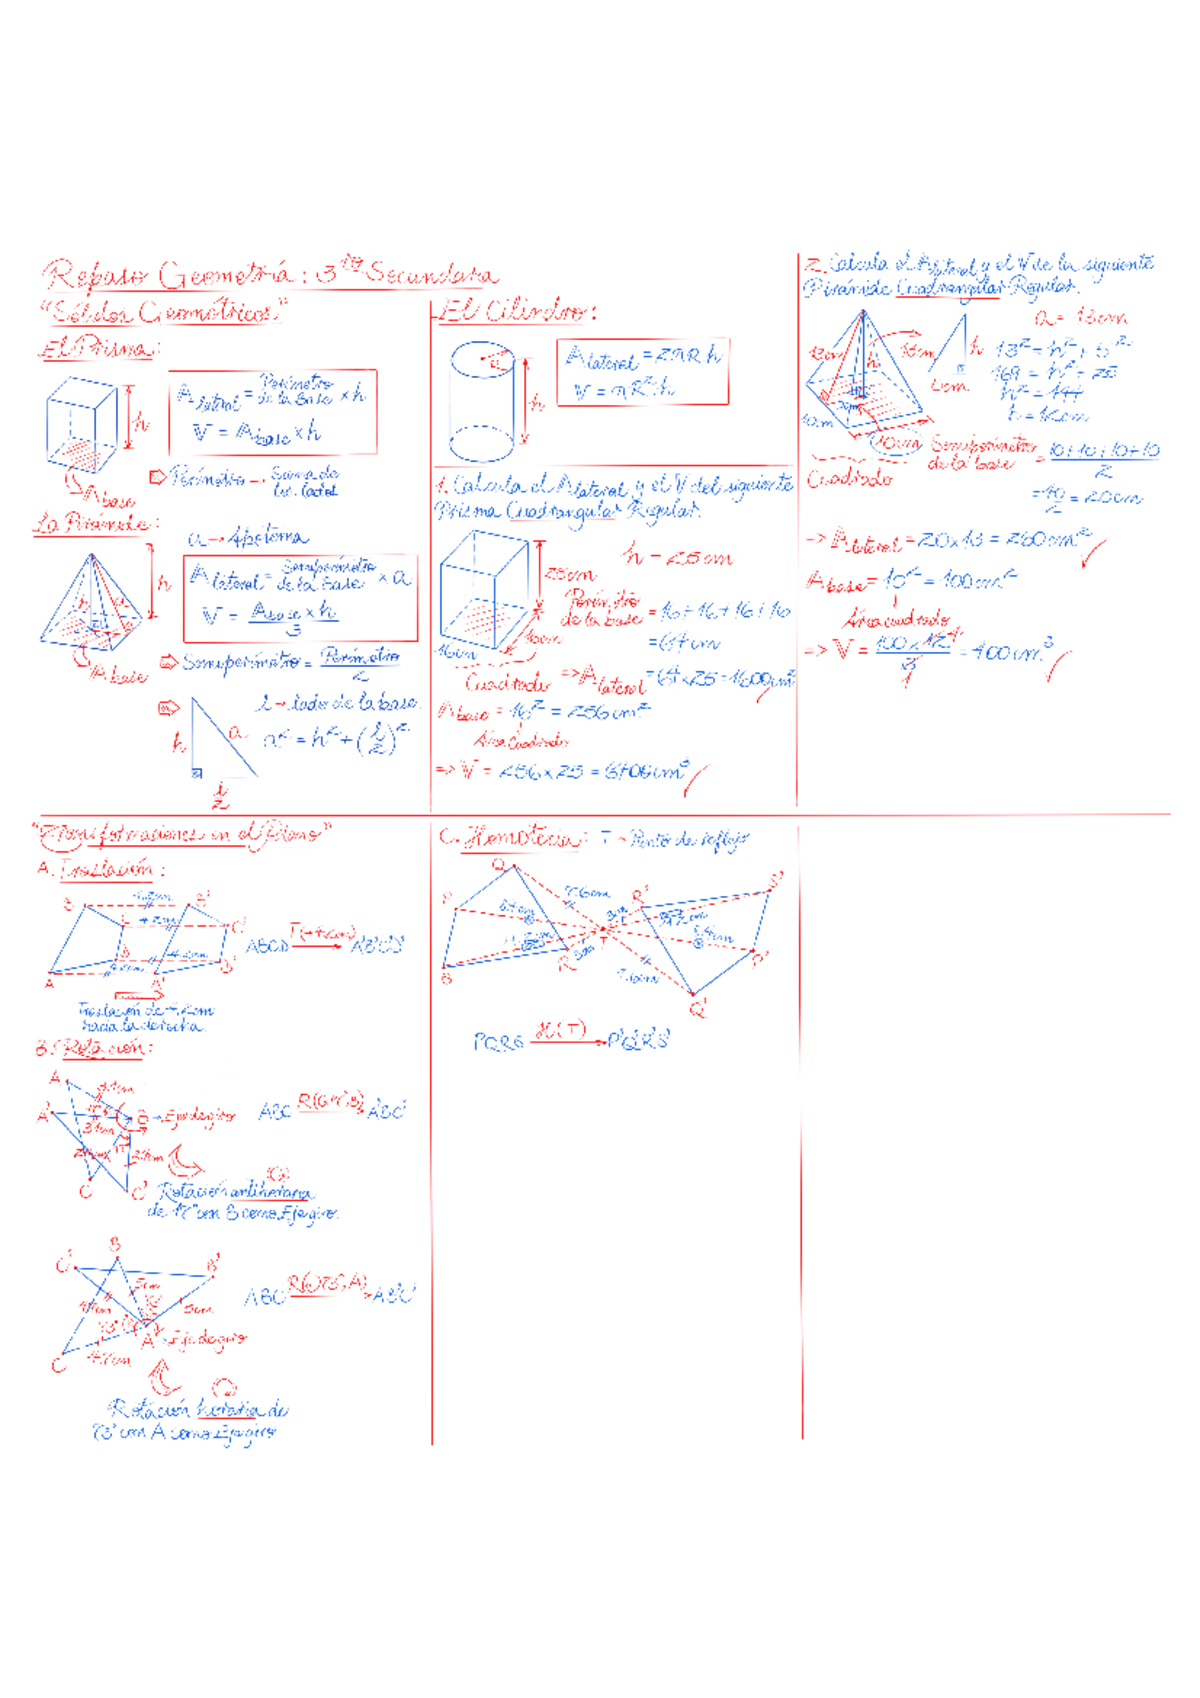 Repaso Geometría: 3ro Secundaria
"Sólidos Geométricos"
El Prisma:
A lateral = Perímetro de la Base × h
V = A base × h
h
A base
⇒ Perímetro → Suma de los lados
La Pirámide:
a → Apotema
A lateral = Semiperímetro de la base × a
V = A base × h / 3
h
h
a
A base
⇒ Semiperímetro = Perímetro / 2
l → lado de la base.
h
a
a² = h² + (l/2)²
l/2
El Cilindro:
h
A lateral = 2πR h
V = πR²·h
1. Calcula el A lateral y el V del siguiente
Prisma Cuadrangular Regular.
h = 25cm
25cm
16cm
16cm
Perímetro de la base = 16+16+16+16
= 64cm
Cuadrado
=> A lateral = 64×25 = 1600cm²
A base = 16² = 256cm²
Área Cuadrado
=> V = 256×25 = 6400cm³
2. Calcula el A lateral y el V de la siguiente
Pirámide Cuadrangular Regular.
a = 13cm
13cm
13cm
h
h
13² = h² + 5²
169 = h² + 25
h² = 144
h = 12cm
10cm
10cm
Cuadrado
Semiperímetro de la base = 10+10+10+10 / 2
= 40/2 = 20cm
-> A lateral = 20×13 = 260cm²
A base = 10² = 100cm²
Área cuadrado
=> V = 100×12 / 3 = 400cm³
"Transformaciones en el Plano"
A. Traslación:
B
B'
C'
4.2cm
A
A'
D'
ABCD T(→4.2cm) A'B'C'D'
Traslación de 4.2cm
hacia la derecha.
B. Rotación:
A
A'
3.1cm
B → Eje de giro
C
C'
Rotación antihoraria
de 17° con B como Eje giro.
B
C'
B'
5cm
5cm
4.7cm
4.7cm
73°
A
Eje de giro
C
Rotación horaria de
73° con A como Eje giro
C. Homotecia: T → Punto de reflejo
Q
P
R'
S'
7.6cm
T
R
P'
7.6cm
Q'
PQRS H(T) P'Q'R'S'